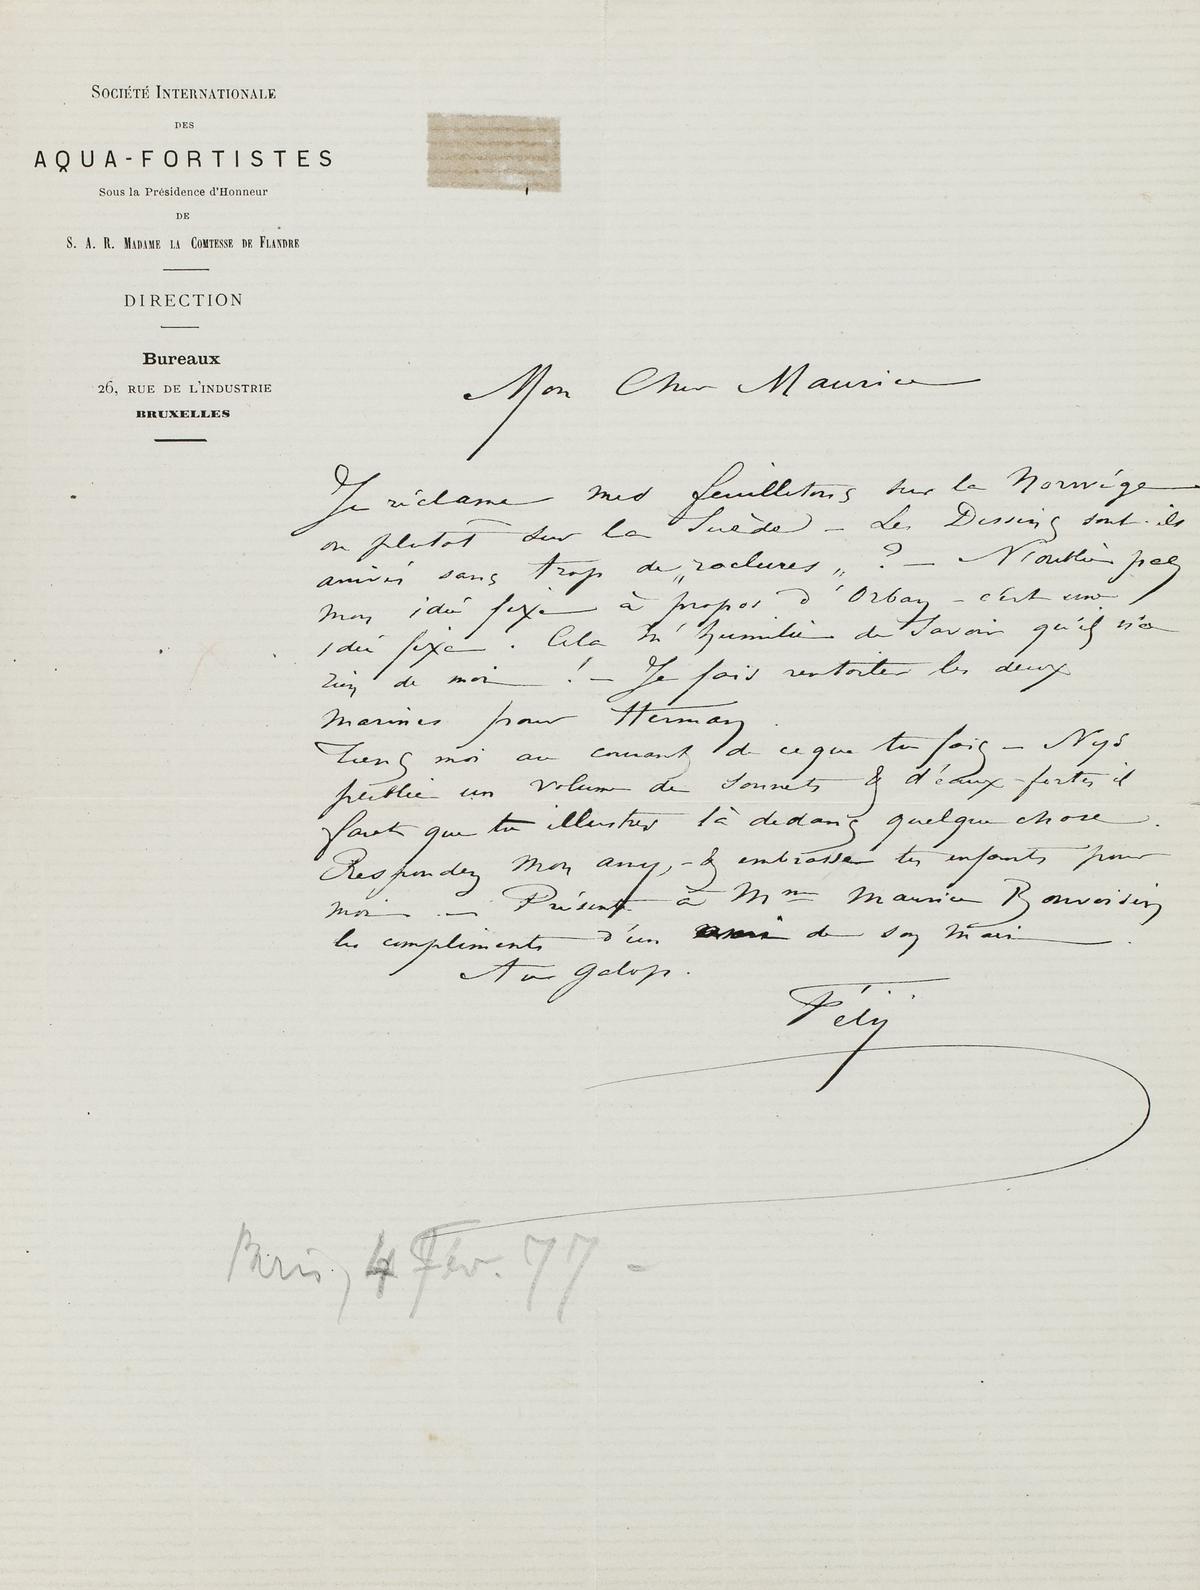 SOCIÉTÉ INTERNATIONALE
DES
AQUA-FORTISTES
Sous la Présidence d'Honneur
DE
S. A. R. MADAME LA COMTESSE DE FLANDRE
DIRECTION
Bureaux
26, RUE DE L'INDUSTRIE
BRUXELLES
Mon Cher Maurice
Je réclame mes feuilletons sur la Norwége
ou plutot sur la Suède – Les Dessins sont-ils
arrivés sans trop de „raclures„ ? – N'oublie pas
mon idée fixe à propos d'Orban – c'est une
idée fixe. Cela m'humilie de savoir qu'il n'a
rien de moi ! – Je fais rentoiler les deux
marines pour Herman.
Tiens moi au courant de ce que tu fais – Nys
publie un volume de sonnets & d'eaux-fortes il
faut que tu illustres là dedans quelque chose.
Respondez mon amy, – & embrasse tes enfants pour
moi. – Présente à Mme Maurice Bonvoisin
les compliments d'un ami de son mari.
Au galop.
Fély
Paris, 4 Fév. 77 –